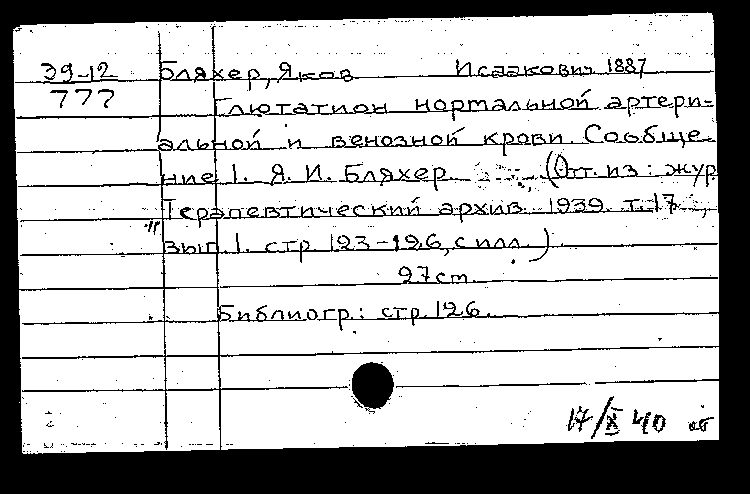 39-12 Бляхер, Яков Исаакович 1887
777 Глютатион нормальной артери-
альной и венозной крови. Сообще-
ние 1. Я. И. Бляхер. (От. из: жур
"Терапевтический архив 1939 т. 17,
вып. 1. стр. 123-126, с илл.)
27 cm.
Библиогр.: стр. 126.
17/X 40